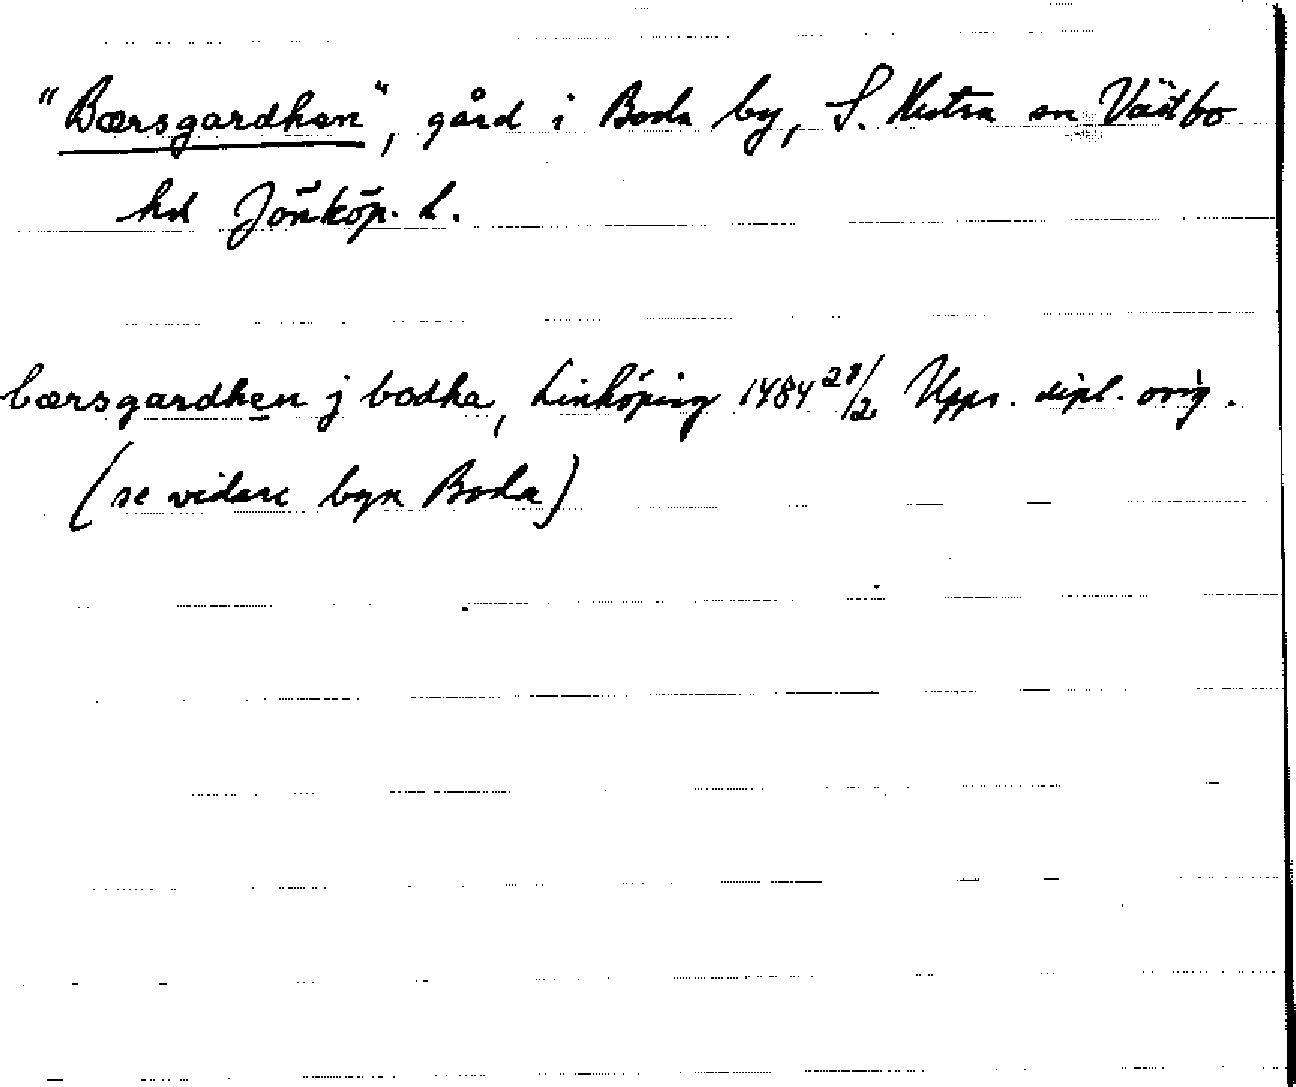 "Bærsgardhen", gård i Boda by, S. Hestra sn Västbo
hd Jönköp. L.
bærsgardhen j bodha, Linköping 1484 28/2 Upps. dipl. orig.
(se vidare byn Boda)